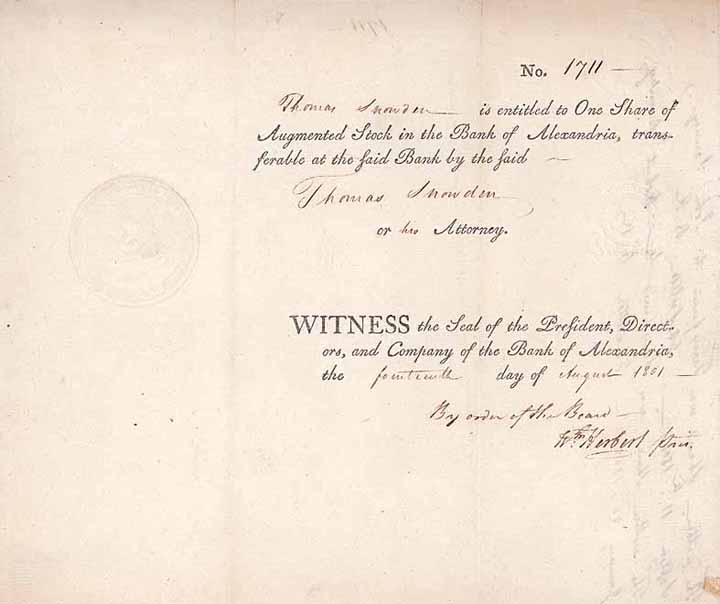 No. 1711
Thomas Snowden is entitled to One Share of
Augmented Stock in the Bank of Alexandria, trans-
ferable at the ſaid Bank by the ſaid
Thomas Snowden
or his Attorney.
WITNESS the Seal of the Preſident, Direct-
ors, and Company of the Bank of Alexandria,
the fourteenth day of August 1801
By order of the Board
Wm Herbert Pres.